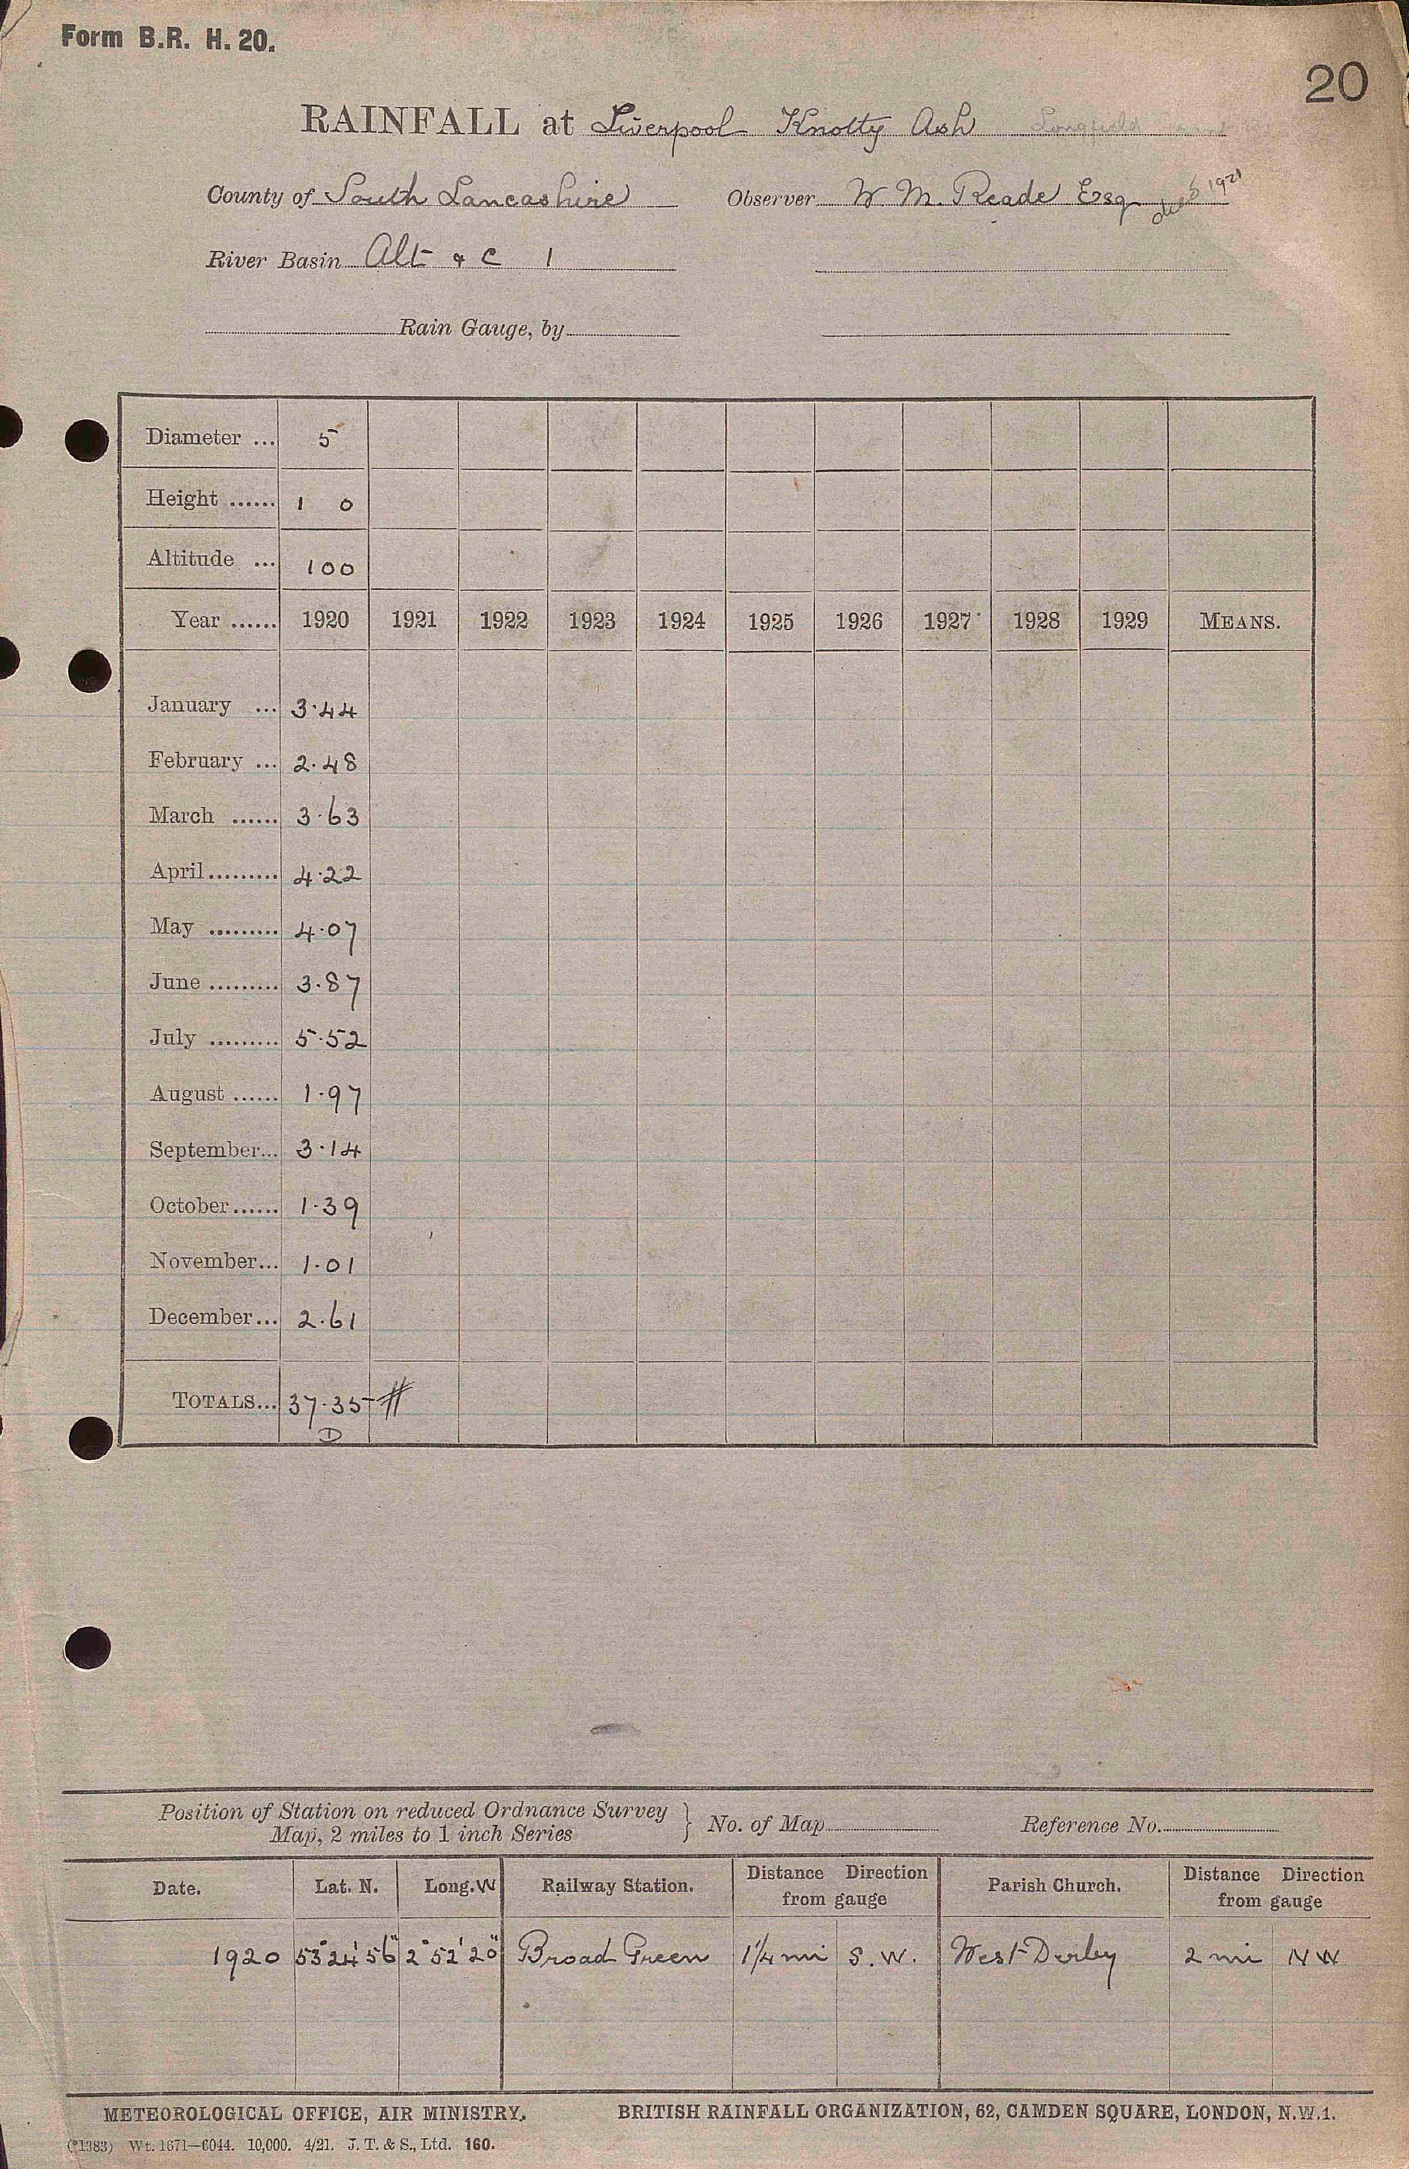 Form B.R. H. 20.
20
RAINFALL at Liverpool Knotty Ash Longfield
County of South Lancashire Observer W. M. Reade Esq died 1921
River Basin Alt & c 1
Rain Gauge, by
Diameter ... 5
Height ...... 1 0
Altitude ... 100
Year ...... 1920 1921 1922 1923 1924 1925 1926 1927 1928 1929 MEANS.
January ... 3.44
February ... 2.48
March ...... 3.63
April ......... 4.22
May ......... 4.07
June ......... 3.87
July ......... 5.52
August ...... 1.97
September... 3.14
October ...... 1.39
November... 1.01
December... 2.61
TOTALS... 37.35 #
D
Position of Station on reduced Ordnance Survey
Map, 2 miles to 1 inch Series } No. of Map Reference No.
Date. Lat. N. Long. W Railway Station. Distance Direction from gauge Parish Church. Distance Direction from gauge
1920 53°24'56" 2°52'20" Broad Green 1¼ mi S.W. West Derby 2 mi N W
METEOROLOGICAL OFFICE, AIR MINISTRY. BRITISH RAINFALL ORGANIZATION, 62, CAMDEN SQUARE, LONDON, N.W.1.
(*1383) Wt. 1671—6044. 10,000. 4/21. J. T. & S., Ltd. 160.